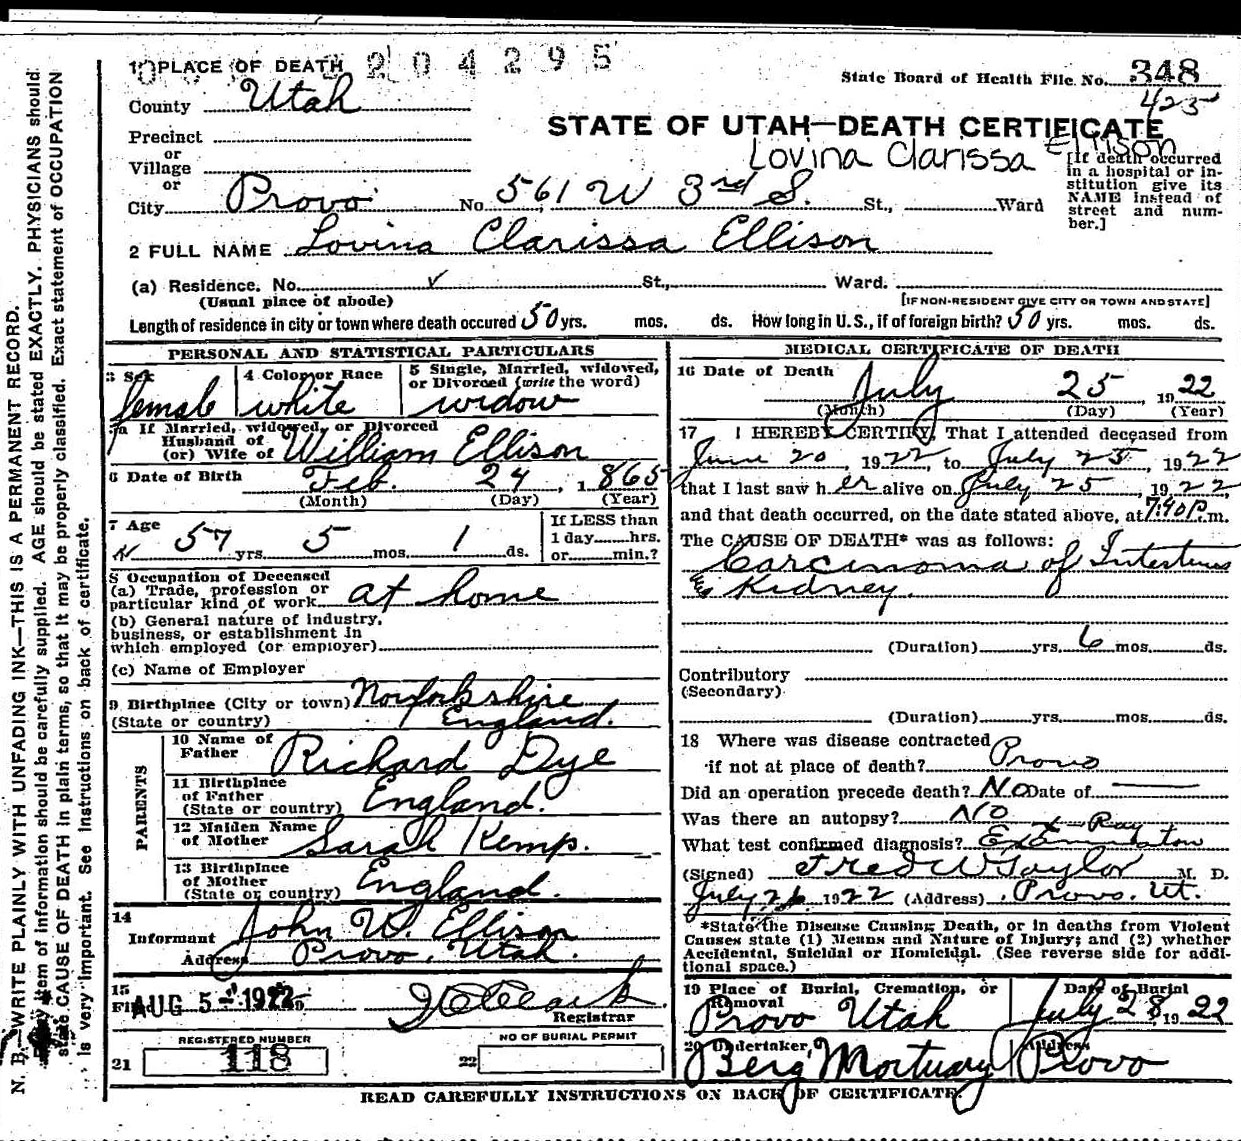 204295
1 PLACE OF DEATH
State Board of Health File No. 348
County Utah
425
STATE OF UTAH—DEATH CERTIFICATE
Precinct
or
Village
or
Lovina Clarissa Ellison
[If death occurred in a hospital or institution give its NAME instead of street and number.]
City Provo No. 561 W 3rd S. St., Ward
2 FULL NAME Lovina Clarissa Ellison
(a) Residence. No. St., Ward.
(Usual place of abode) [IF NON-RESIDENT GIVE CITY OR TOWN AND STATE]
Length of residence in city or town where death occured 50 yrs. mos. ds. How long in U.S., if of foreign birth? 50 yrs. mos. ds.
PERSONAL AND STATISTICAL PARTICULARS
3 Sex
female
4 Color or Race
white
5 Single, Married, widowed, or Divorced (write the word)
widow
5a If Married, widowed, or Divorced
Husband of
(or) Wife of William Ellison
6 Date of Birth Feb. 24, 1865
(Month) (Day) (Year)
7 Age
57 yrs. 5 mos. 1 ds.
If LESS than
1 day......hrs.
or......min.?
8 Occupation of Deceased
(a) Trade, profession or
particular kind of work at home
(b) General nature of industry,
business, or establishment in
which employed (or employer)
(c) Name of Employer
9 Birthplace (City or town) Norforkshire
(State or country) England.
PARENTS
10 Name of
Father Richard Dye
11 Birthplace
of Father
(State or country) England.
12 Maiden Name
of Mother Sarah Kemp.
13 Birthplace
of Mother
(State or country) England.
14
Informant John W. Ellison
Address Provo, Utah.
15
Filed AUG 5 - 1922
Registrar
REGISTERED NUMBER
21 118
NO OF BURIAL PERMIT
22
MEDICAL CERTIFICATE OF DEATH
16 Date of Death July 25, 1922
(Month) (Day) (Year)
17 I HEREBY CERTIFY, That I attended deceased from
June 20, 1922, to July 25, 1922
that I last saw her alive on July 25, 1922,
and that death occurred, on the date stated above, at 7:40 P.m.
The CAUSE OF DEATH* was as follows:
Carcinoma of Intestines
& Kidney.
(Duration) yrs. 6 mos. ds.
Contributory
(Secondary)
(Duration) yrs. mos. ds.
18 Where was disease contracted
if not at place of death? Provo
Did an operation precede death? No Date of
Was there an autopsy? No
X-Ray
What test confirmed diagnosis? Examination
(Signed) Fred W Taylor M. D.
July 26 1922 (Address) Provo. Ut.
*State the Disease Causing Death, or in deaths from Violent
Causes state (1) Means and Nature of Injury; and (2) whether
Accidental, Suicidal or Homicidal. (See reverse side for addi-
tional space.)
19 Place of Burial, Cremation, or
Removal
Provo Utah
Date of Burial
July 28, 1922
20 Undertaker,
Berg Mortuary
Address
Provo
READ CAREFULLY INSTRUCTIONS ON BACK OF CERTIFICATE.
N. B.—WRITE PLAINLY WITH UNFADING INK—THIS IS A PERMANENT RECORD.
Every item of information should be carefully supplied. AGE should be stated EXACTLY. PHYSICIANS should
state CAUSE OF DEATH in plain terms, so that it may be properly classified. Exact statement of OCCUPATION
is very important. See instructions on back of certificate.